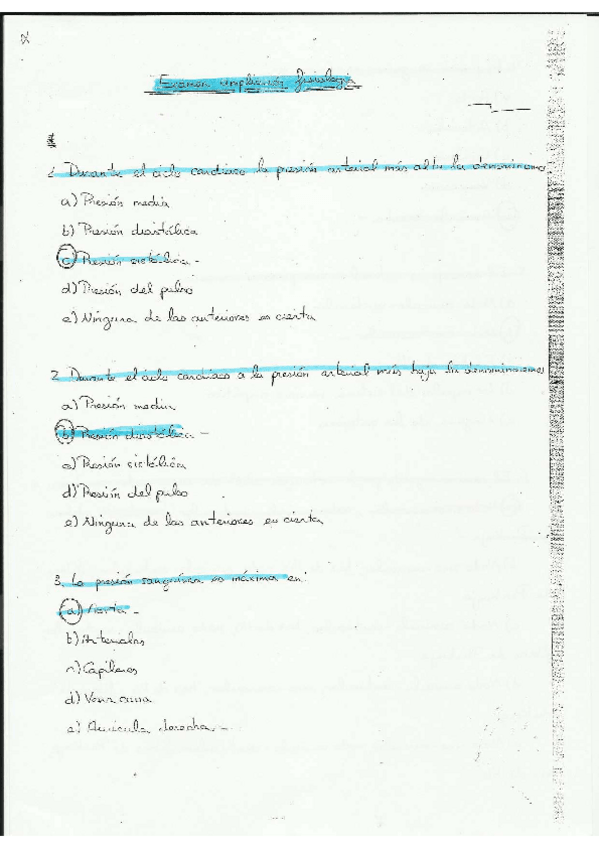 Examen ampliación fisiología
1. Durante el ciclo cardíaco la presión arterial más alta la denominamos
a) Presión media
b) Presión diastólica
c) Presión sistólica -
d) Presión del pulso
e) Ninguna de las anteriores es cierta
2. Durante el ciclo cardíaco a la presión arterial más baja la denominamos
a) Presión media
b) Presión diastólica -
c) Presión sistólica
d) Presión del pulso
e) Ninguna de las anteriores es cierta
3. La presión sanguínea es máxima en:
a) Aorta -
b) Arteriolas
c) Capilares
d) Vena cava
e) Aurícula derecha -